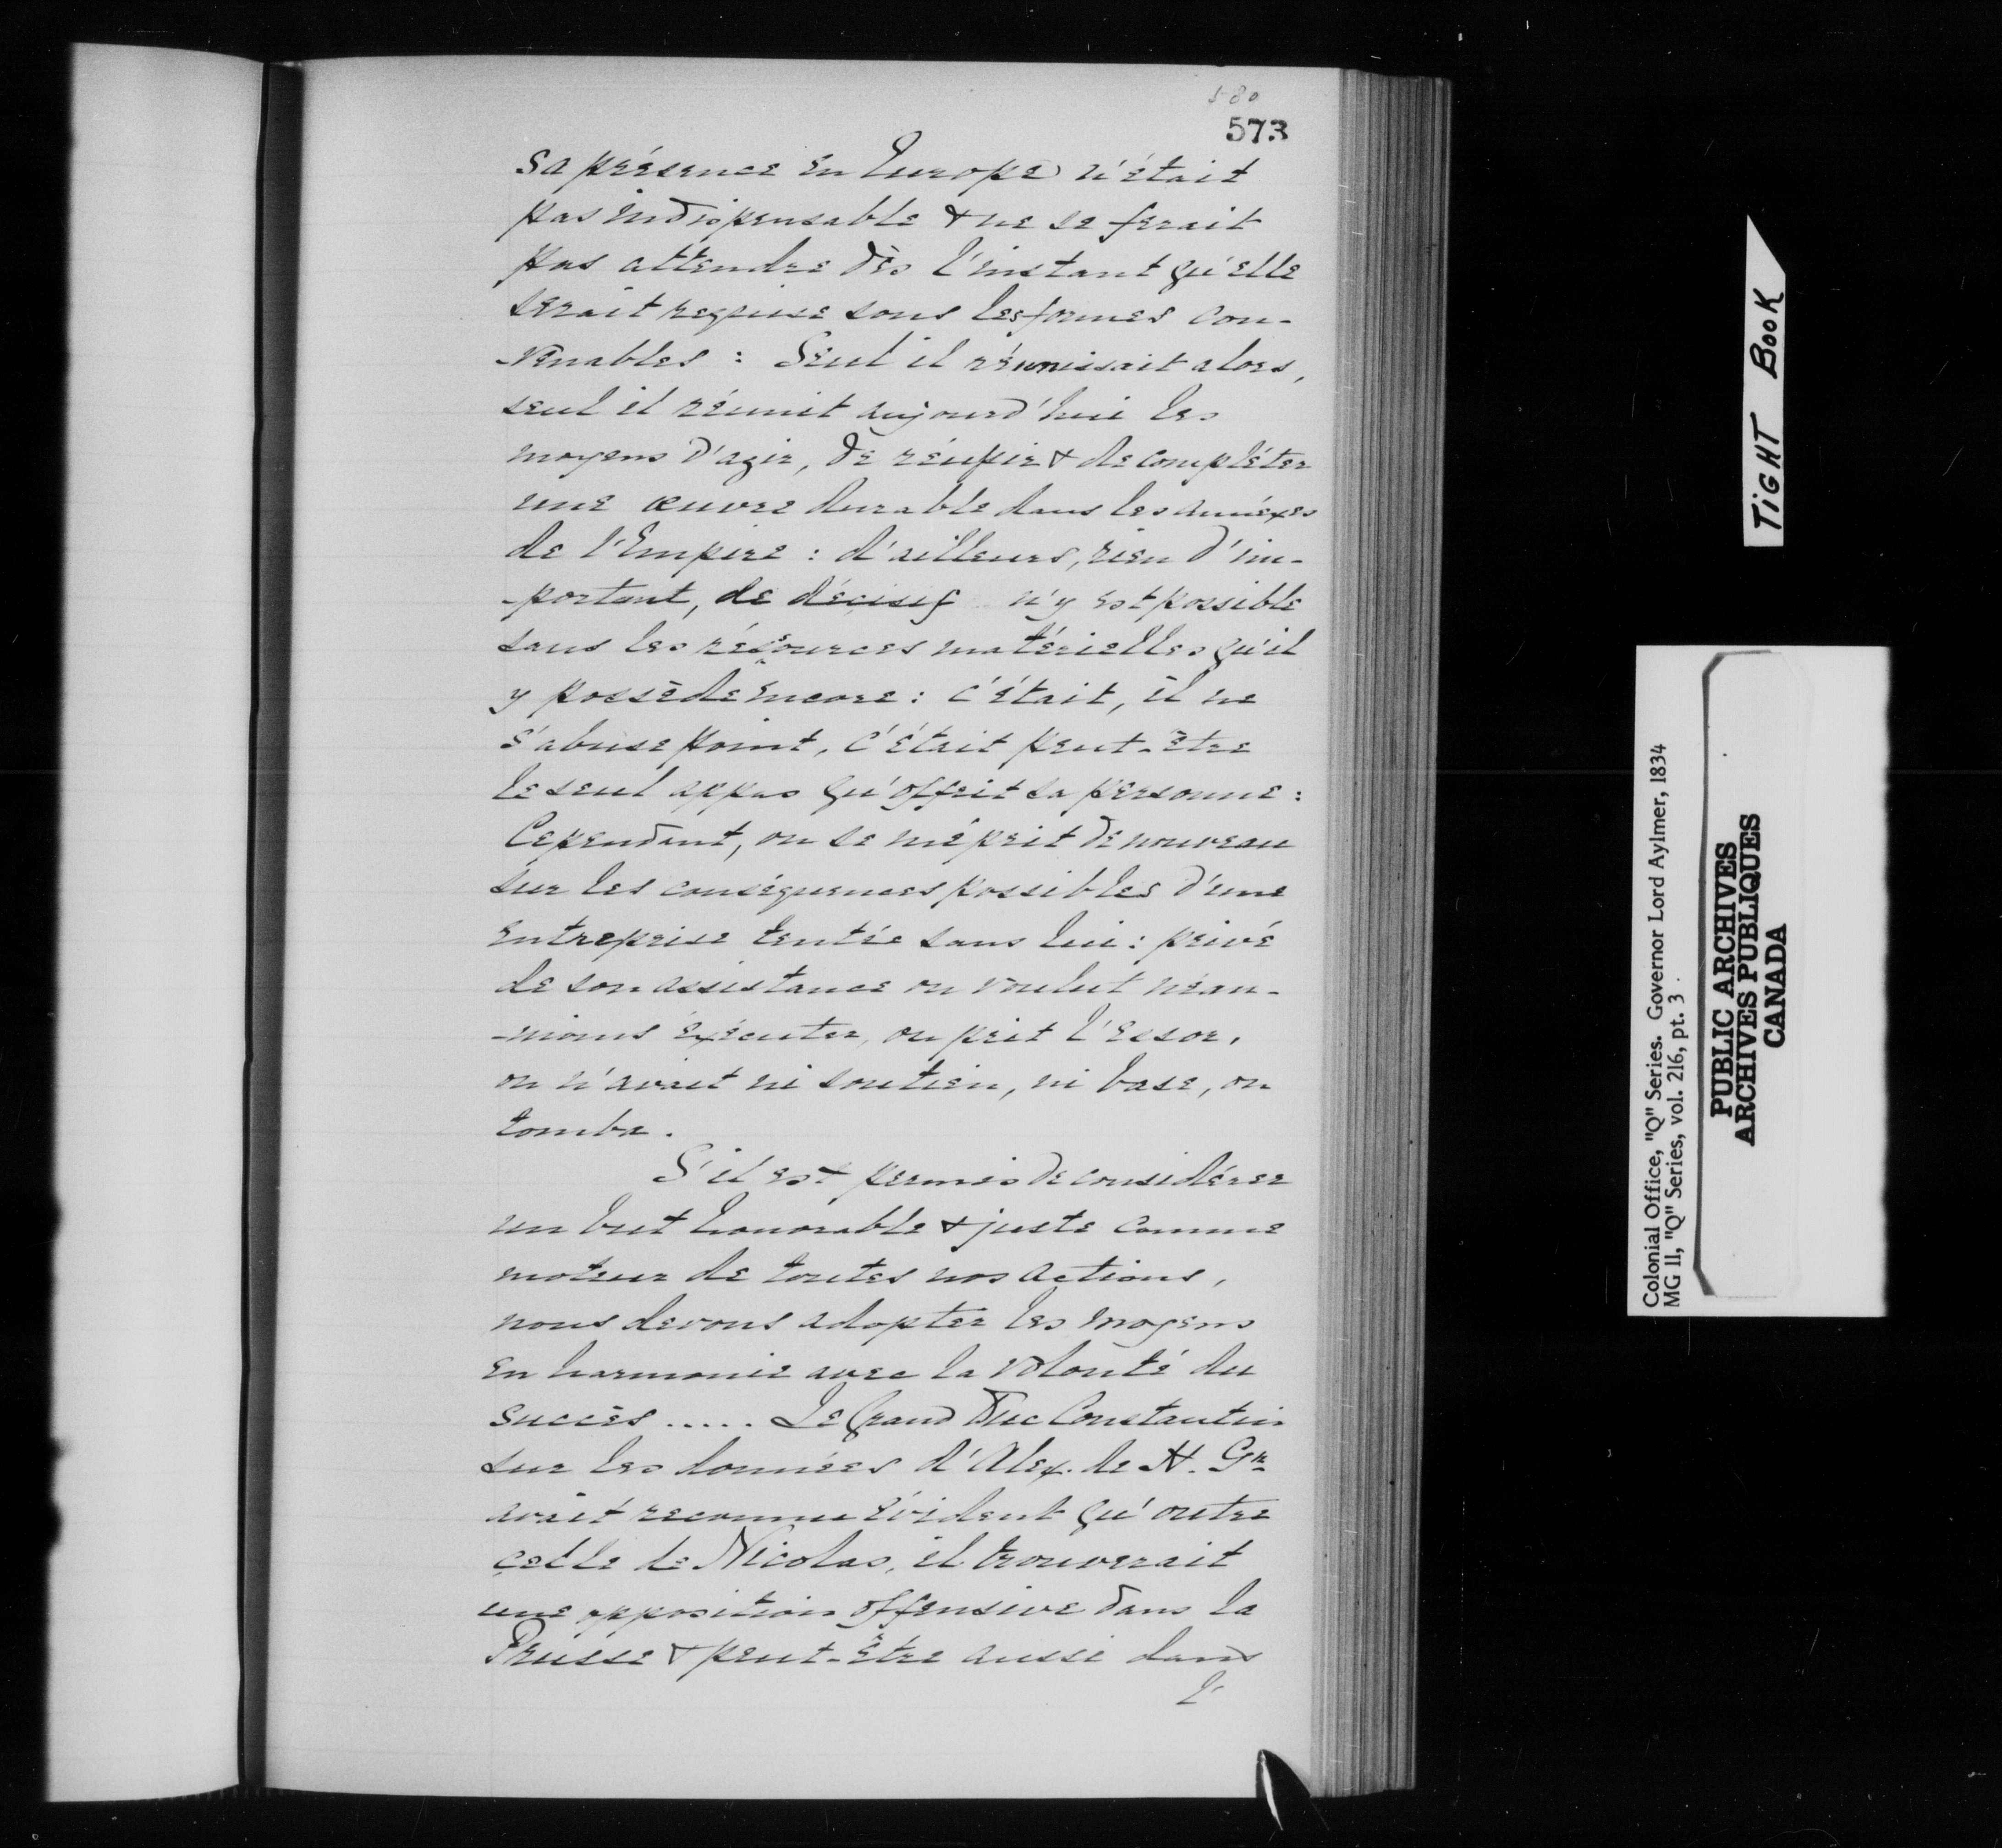 580
573
sa présence en Europe n'était
pas indispensable & ne se ferait
pas attendre dès l'instant qu'elle
serait requise sous les formes con-
-venables : Seul il réunissait alors,
seul il réunit aujourd'hui les
moyens d'agir, de réunir & de compléter
une œuvre durable dans les annéxes
de l'Empire : d'ailleurs, rien d'im-
-portant, de décisif n'y est possible
sans les résources matérielles qu'il
y possède encore : c'était, il ne
s'abuse point, c'était peut-être
le seul appas qu'offrit sa personne :
Cependant, on se méprit de nouveau
sur les conséquences possibles d'une
entreprise tentée sans lui : privé
de son assistance on voulut néan-
-moins éxécuter, on prit l'essor,
on n'avait ni soutien, ni base, on
tomba.
S'il est permis de considérer
un but honorable & juste comme
moteur de toutes nos actions,
nous devons adopter les moyens
en harmonie avec la volonté du
succès ..... Le Grand Duc Constantin
sur les données d'Alex. de H. Gr
avait reconnu évident qu'outre
celle de Nicolas, il trouverait
une opposition offensive dans la
Prusse & peut-être aussi dans
l'
TIGHT BOOK
Colonial Office, "Q" Series. Governor Lord Aylmer, 1834
MG 11, "Q" Series, vol. 216, pt. 3
PUBLIC ARCHIVES
ARCHIVES PUBLIQUES
CANADA